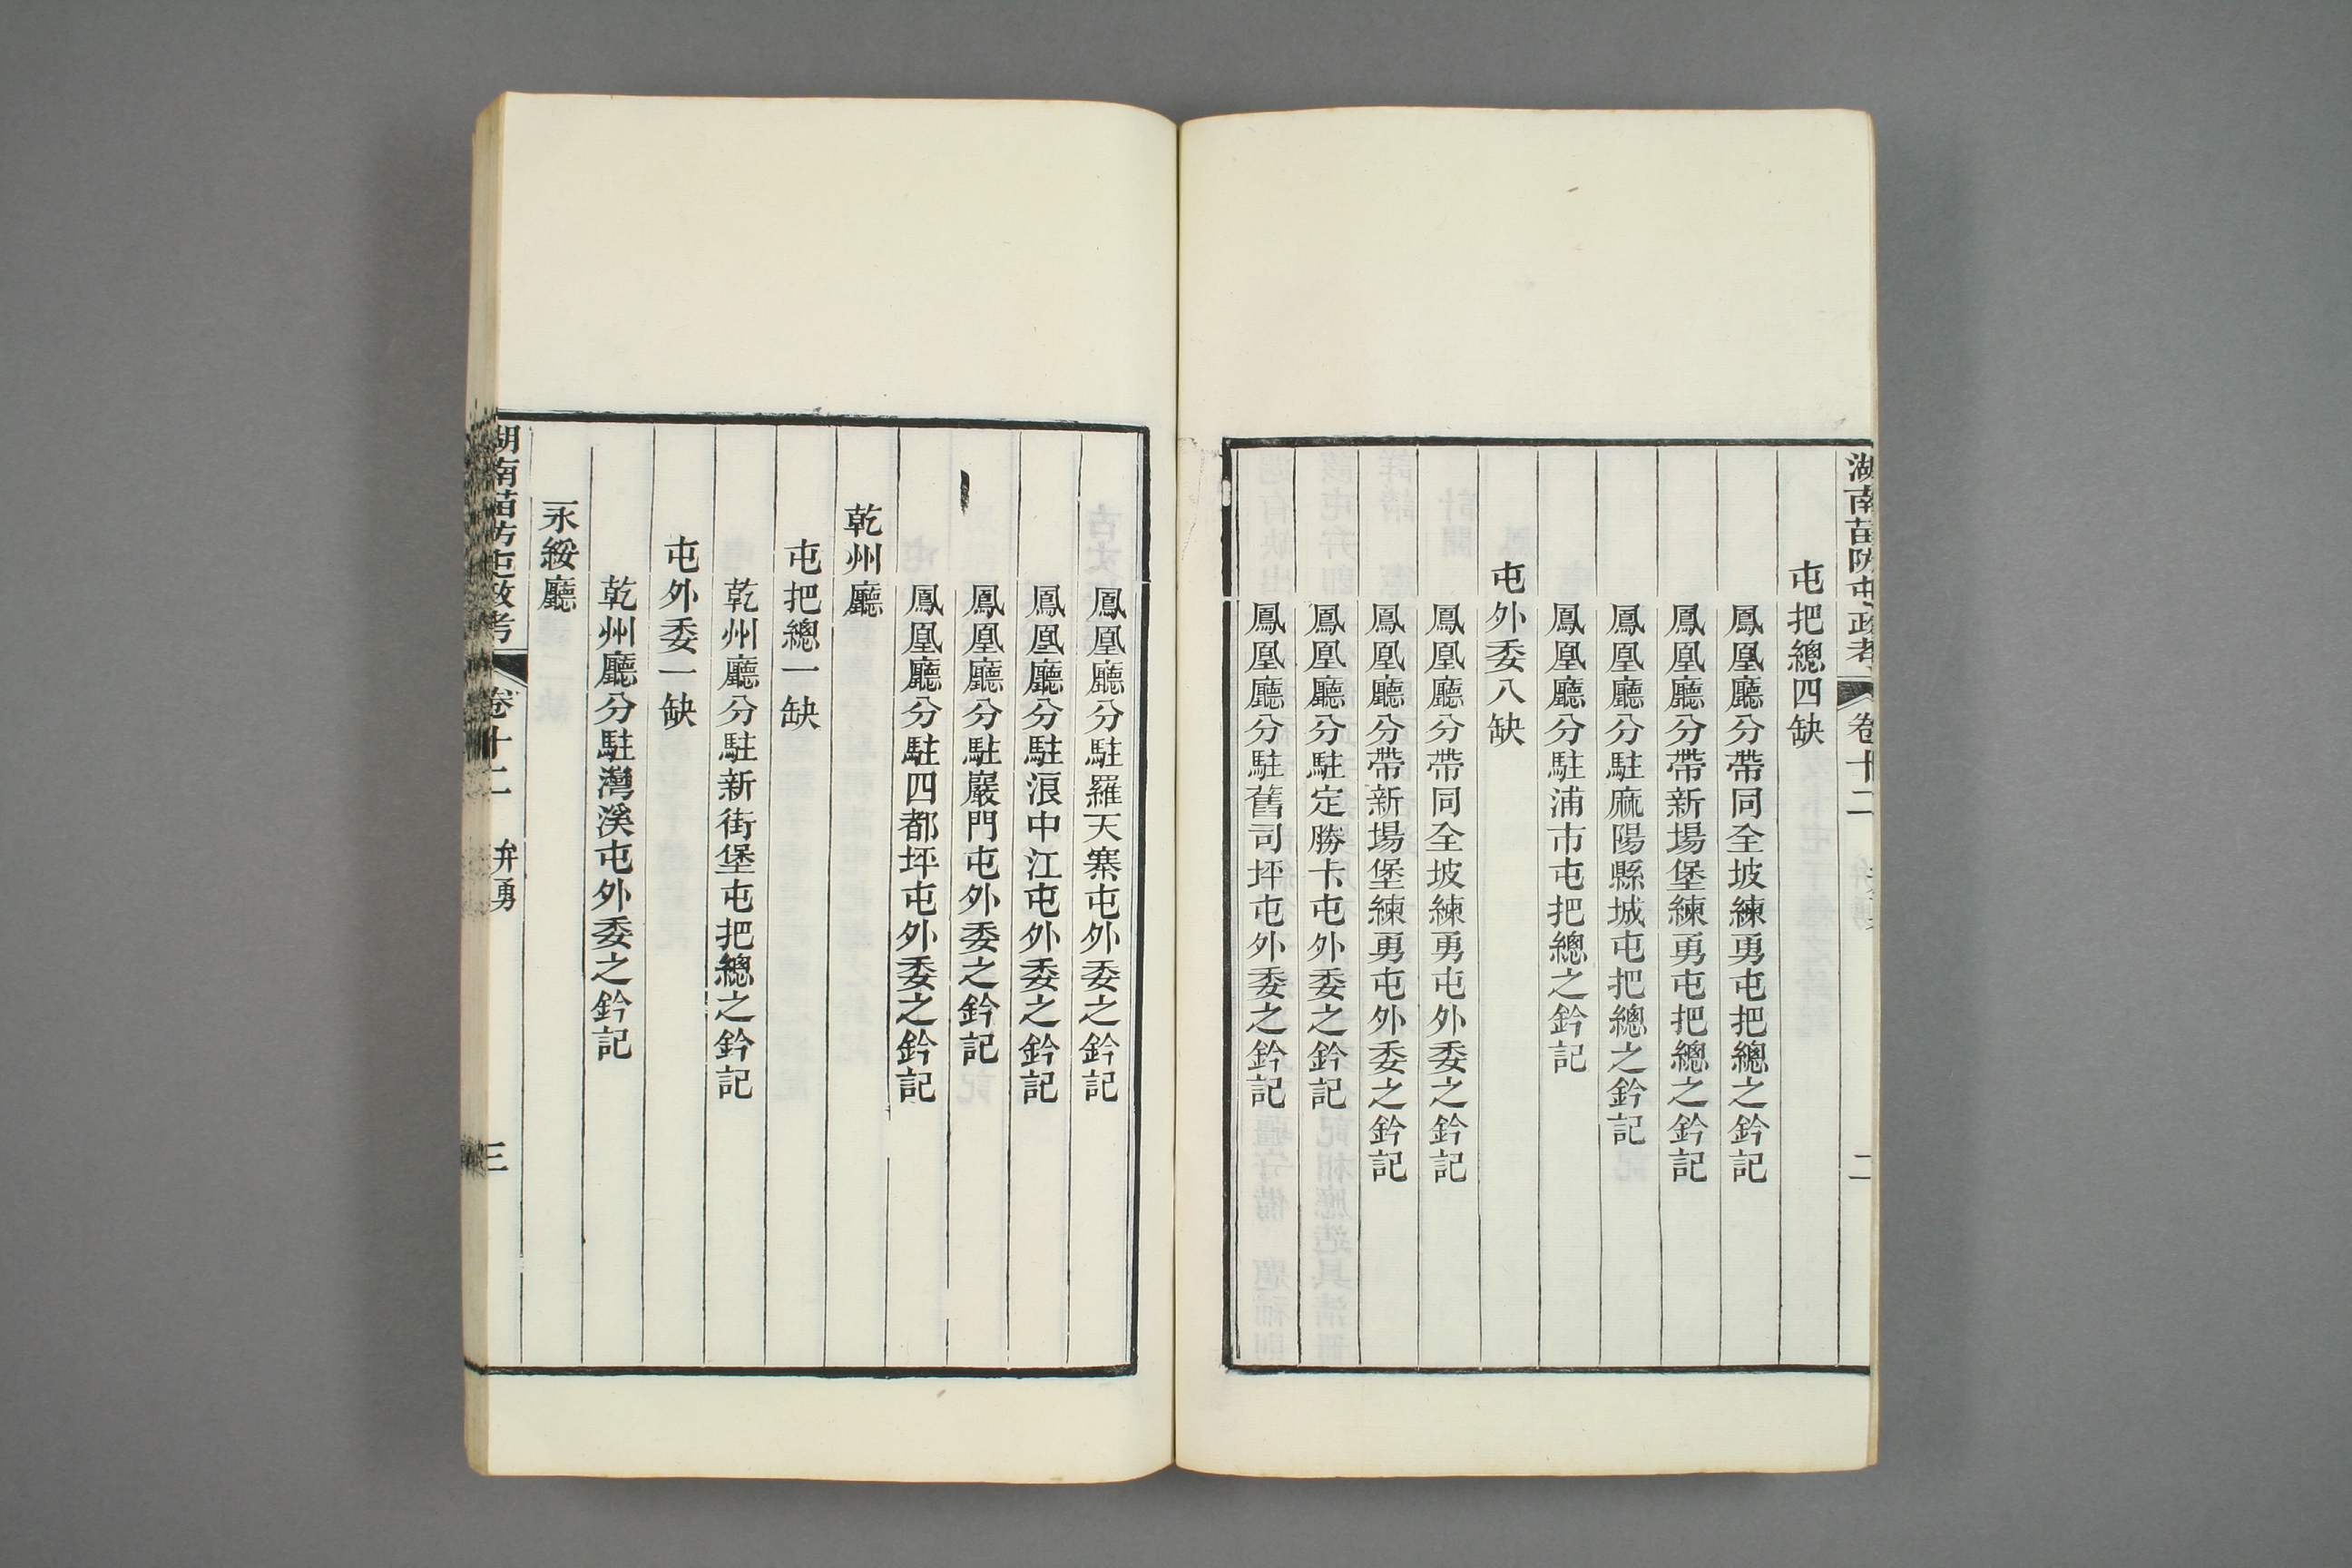 湖南苗防屯政考 卷十二 二
屯把總四缺
鳳凰廳分帶同全坡練勇屯把總之鈐記
鳳凰廳分帶新場堡練勇屯把總之鈐記
鳳凰廳分駐麻陽縣城屯把總之鈐記
鳳凰廳分駐浦市屯把總之鈐記
屯外委八缺
鳳凰廳分帶同全坡練勇屯外委之鈐記
鳳凰廳分帶新場堡練勇屯外委之鈐記
鳳凰廳分駐定勝卡屯外委之鈐記
鳳凰廳分駐舊司坪屯外委之鈐記
鳳凰廳分駐羅天寨屯外委之鈐記
鳳凰廳分駐浪中江屯外委之鈐記
鳳凰廳分駐巖門屯外委之鈐記
鳳凰廳分駐四都坪屯外委之鈐記
乾州廳
屯把總一缺
乾州廳分駐新街堡屯把總之鈐記
屯外委一缺
乾州廳分駐灣溪屯外委之鈐記
永綏廳
湖南苗防屯政考 卷十二 弁勇 三